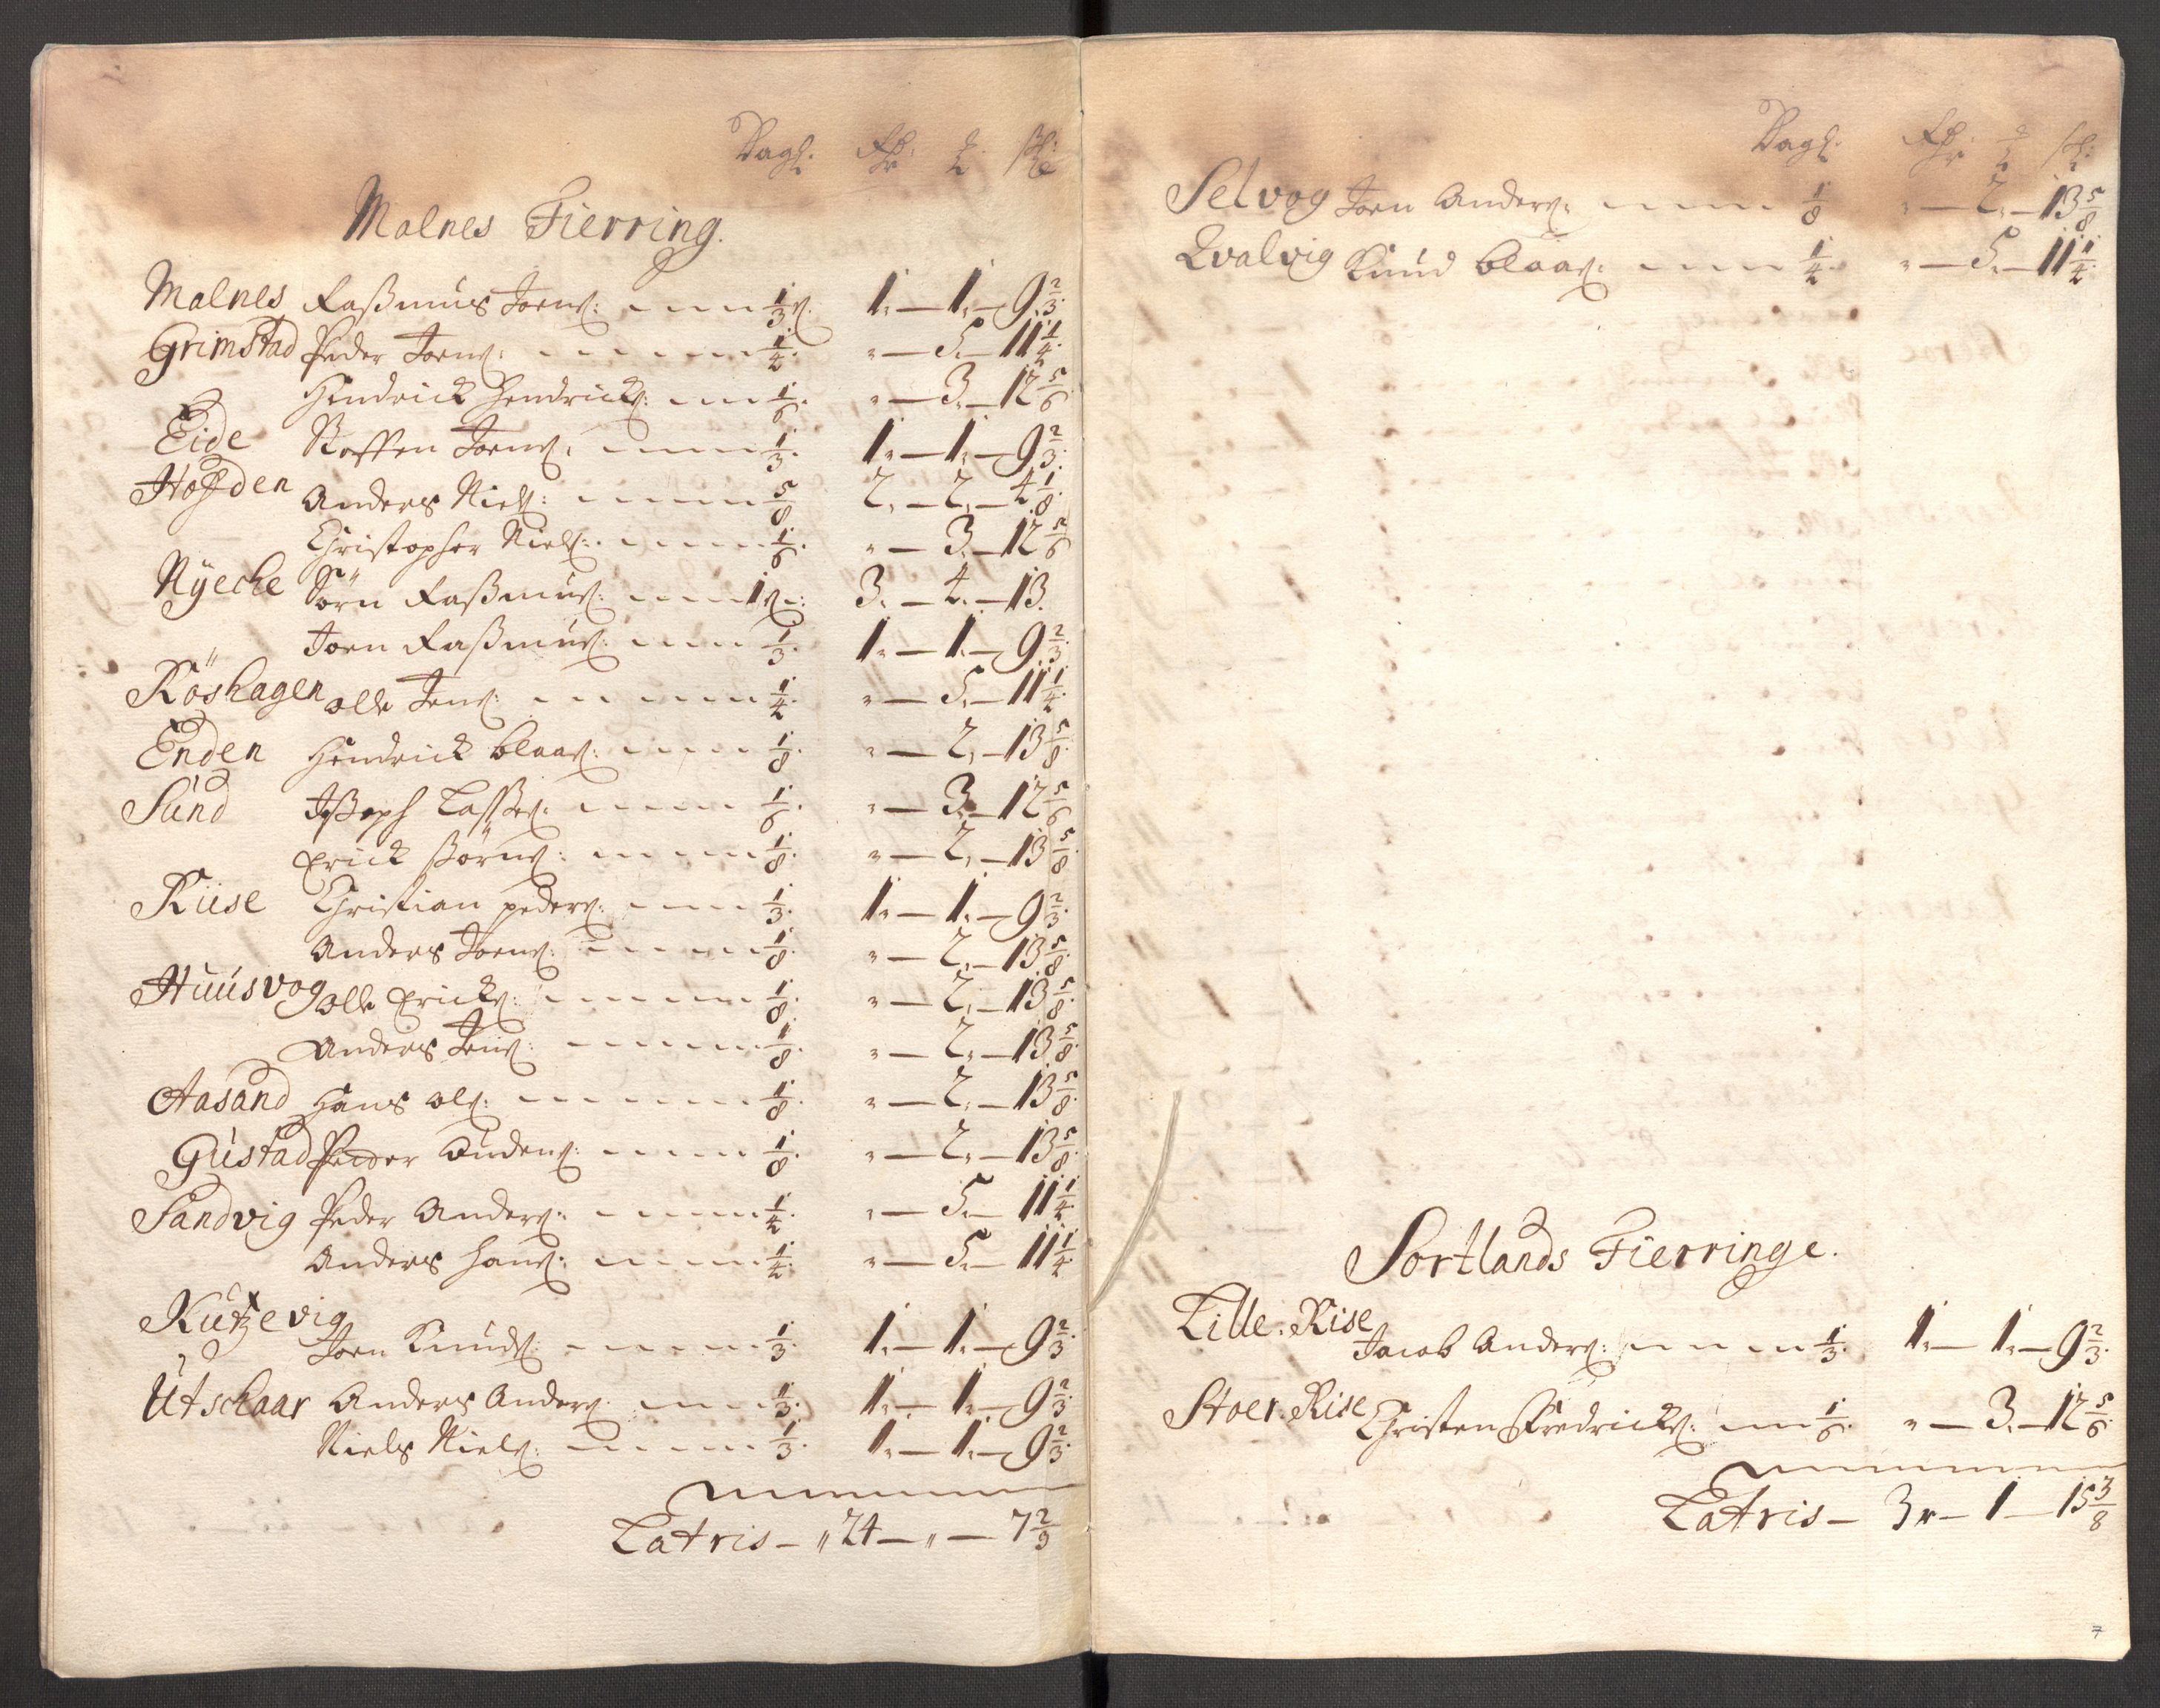 Wagl. Rdr: ℔ sk:
Malnes Fierring.
Malnes Rasßmus Joens: 1/3 w. 1. — 1. — 9 2/3.
Grimstad Peder Joens: 1/4. " — 5. — 11 1/4.
Hendrick Hendricks: 1/6. " — 3. — 12 5/6
Eide Steffen Joens: 1/3. 1. — 1. — 9 2/3.
Hofden Anders Niels: 5/8 2. — 2. — 4 1/8.
Christopher Niels: 1/6. " — 3. — 12 5/6
Nÿeche Sörn Rasßmus: 1 w: 3. — 4. — 13.
Joen Rasßmus: 1/3. 1. — 1. — 9 2/3.
Röshagen Olle Jens: 1/4. " — 5. — 11 1/4.
Enden Hendrick Claas: 1/8. " — 2. — 13 5/8.
Sund Jßeph Lasses: 1/6. " — 3. — 12 5/6
Erick Sörns: 1/8. " — 2. — 13 5/8
Riise Christian peders: 1/3. 1. — 1. — 9 2/3.
Anders Joens: 1/8. " — 2. — 13 5/8.
Huusvog Olle Ericks: 1/8. " — 2. — 13 5/8.
Anders Jens: 1/8. " — 2. — 13 5/8.
Aasand Hans Ols: 1/8. " — 2. — 13 5/8.
Gustad Peder Audens: 1/8. " — 2. — 13 5/8.
Sandvig Peder Anders: 1/4. " — 5. — 11 1/4.
Anders Hans: 1/4. " — 5. — 11 1/4
Kutzevig
Joen Knuds: 1/3. 1. — 1. — 9 2/3.
Utschaar Anders Anders: 1/3. 1. — 1. — 9 2/3.
Niels Niels: 1/3. 1. — 1. — 9 2/3.
Latris — " 24 — " — 7 2/9
Wagl. Rdr: ℔ sk:
Selvog Joen Anders: 1/8 " — 2. — 13 5/8
Qvalvig Knud Claas: 1/4. " — 5. — 11 1/4.
Sortlands Fierringe.
Lille. Rise
Jacob Anders: 1/3. 1. — 1. — 9 2/3.
Stoer. Rise Christen Fredricks: 1/6. " — 3. — 12 5/6.
Latris — 3 r — 1 — 15 3/8
7